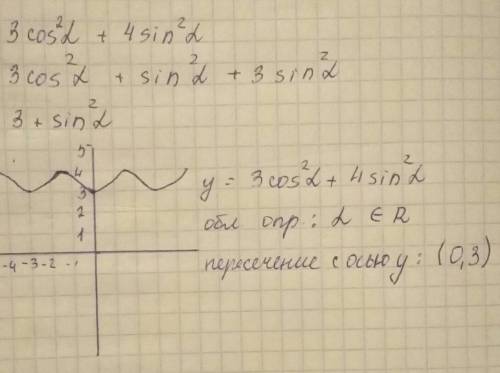 3cos²α + 4sin²α
3cos²α + sin²α + 3sin²α
3 + sin²α
5
4
3
2
1
-4 -3 -2 -1
y = 3cos²α + 4sin²α
обл опр: α ∈ R
пересечение с осью y: (0,3)